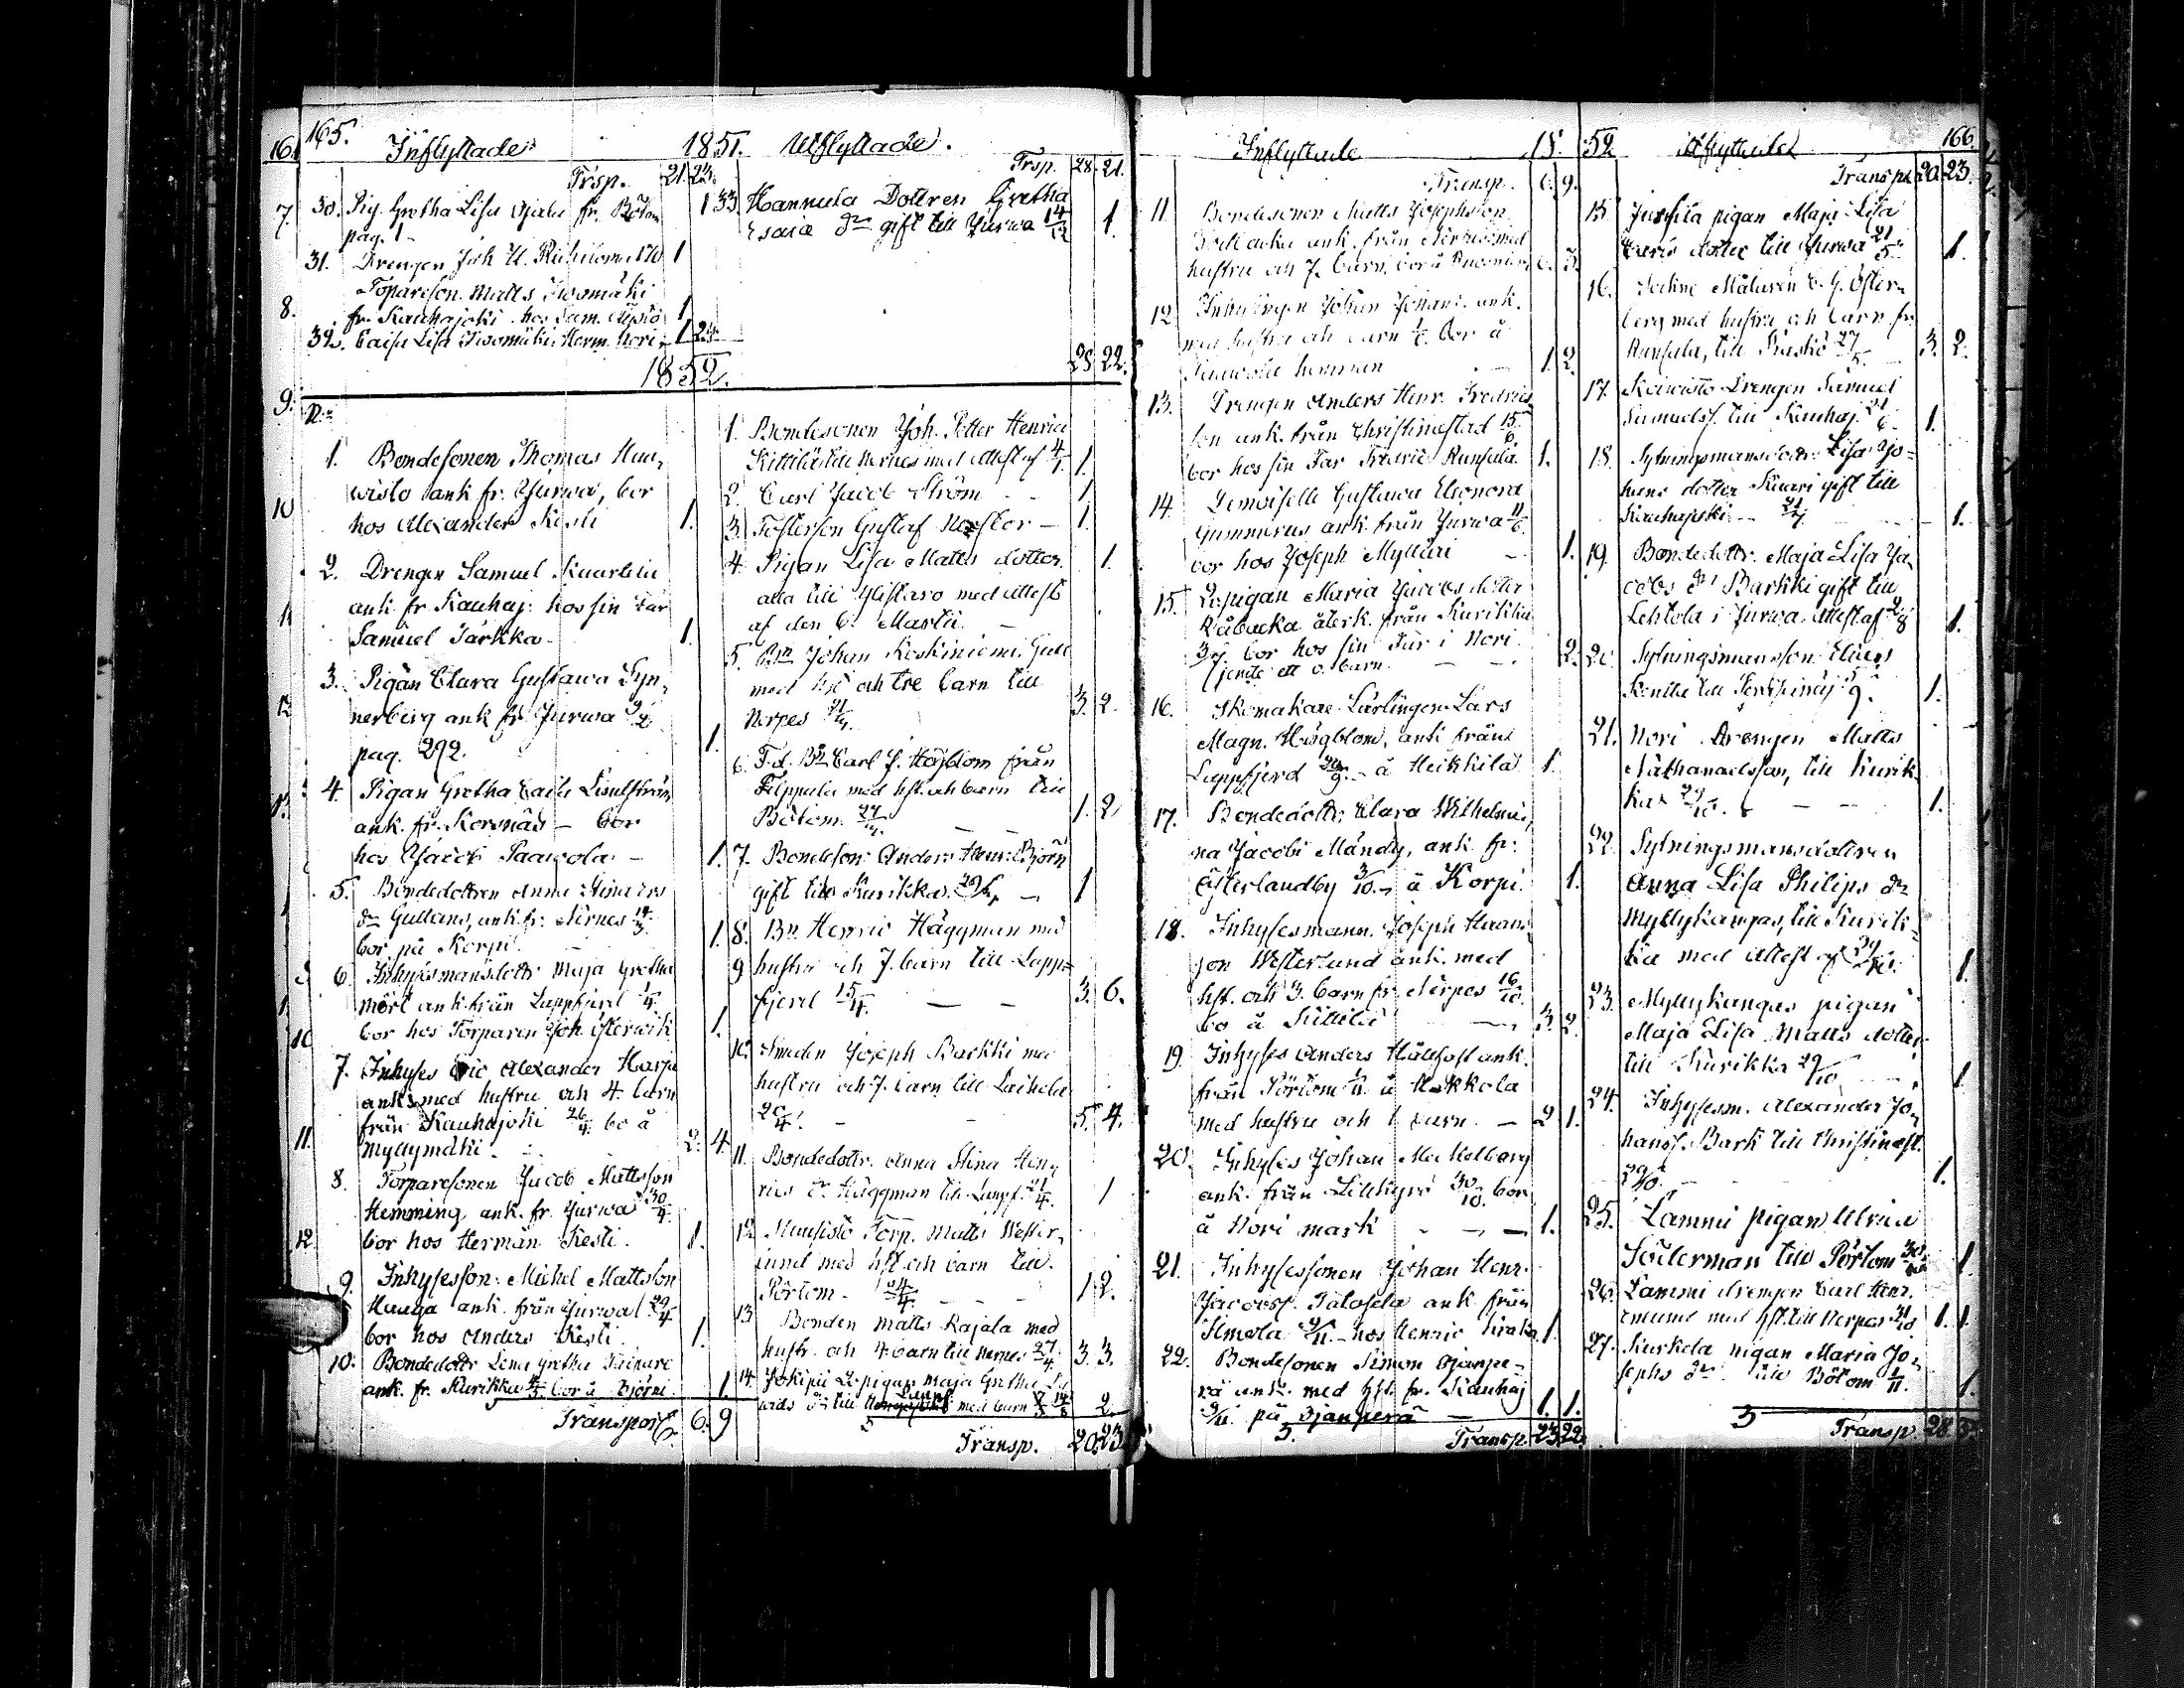 165.
Inflyttade 1851. Utflyttade.
Trsp. 21. 23.
30. Pig. Gretha Lisa Ojala fr. Bötom
pag. 1
31. Drengen Joh.
Torpareson. Matts Iivomäki
fr. Kauhajoki hos Sam. 1
32. Caisa Lisa Iivomäki, Herm. Nori 1 24
Trsp. 28. 21.
33. Hannula Dottren Gretha
Esaiæ dr gift till Jurwa 14/12 1.
28 22.
1852.
N:o
1. Bondesonen Thomas Kua-
wisto ank fr. Jurwa, bor
hos Alexander Kesti 1.
2. Drengen Samuel Kaartela
ank fr. Kauhaj. hos sin far
Samuel Tarkka 1.
3. Pigan Clara Gustawa Syn-
nerberg ank fr. Jurwa 9/2
pag. 292. 1.
4. Pigan Gretha Caisa
ank. fr. Korsnäs – bor
hos Jacob Paawola – 1.
5. Bondedottren Anna Stina
dr Gullans, ank. fr. Nerpes 14/3
bor på Korpi. 1.
6. Inhysesmansdottr Maja Gretha
Mört ank. från Lappfjerd 1/4
bor hos Torparen Joh. Österwik 1.
7. Inhyses Eric Alexander Harju
ank. med hustru och 4. barn
från Kauhajoki 26/4. bo å
Myllymäki. 2. 4.
8. Torparesonen Jacob Mattsson
Hemming ank. fr. Jurwa 30/4.
bor hos Herman Kesti. 1.
9. Inhysesson: Michel Mattsson
Hauga ank. från Jurwa 29/4
bor hos Anders Kesti. 1.
10. Bondedottr Lena Gretha
ank. fr. Kurikka bor å Björni 1.
Transport 6. 9
1. Bondesonen Joh. Petter Henrics
Kittilä till Nerpes med attest af 4/1 1.
2. Carl Jacob Ström 1.
3. Fosterson Gustaf 1.
4. Pigan Lisa Matts dotter 1.
alla till Ylistaro med attest
af den 6. Martii. –
5. Bn Johan Koskiniemi
med hst och tre barn till
Nerpes 21/4. 3. 2.
6. F.d. Bn Carl J. Höjblom från
Filppula med hst. och barn till
Bötom. 27/4. 1. 2.
7. Bondeson: Anders Henr. Björn
gift till Kurikka. – 1
8. Bn Henric Häggman med
9 hustru och 7. barn till Lapp-
fjerd 15/4. 3. 6.
10. Smeden Joseph Barkki med
hustru och 7. barn till Laihela
20/4. 5. 4.
11. Bondedottr. Anna Stina Hen-
rics dr Häggman till Lappf. 21/4. 1
12 Torp. Matts Wester-
lund med hst. och barn till.
Pörtom – 24/4. 1 2.
13 Bonden Matts Rajala med
hustr. och 4 barn till Nerpes 27/4. 3. 3.
14. Maja Gretha
dr till Lappf med barn 2.
Transp. 20. 23.
166.
Inflyttade 1852 Utflyttade
Transp. 6. 9.
11. Bondesonen Matts Josephsson
ank. från Nerpes med
hustru och 7. barn, bor å 6. 3.
12. Inhysingen Johan Johans. ank.
med hustru och barn bor å
hemman 1. 2.
13. Drengen Anders Henr. Fredrics-
son ank. från Christinestad 15/6.
bor hos sin Far Fredric Ranfala. 1.
14. Demoiselle Gustawa Eleonora
Gummerus ank. från Jurwa 11/6
bor hos Joseph Mylläri – 1.
15. Löspigan Maria Jacobs dotter
Råbacka återk. från Kurikka
bor hos sin Far i Nori.
jemte ett o. barn. – 2.
16. Skomakare Lärlingen Lars
Magn. Högblom, ank från
Lappfjerd 20/9. – å Heikkilä 1.
17. Bondedottr. Clara Wilhelmi-
na Jacobs Mändy, ank. fr.
Österlandby 3/10. – å Korpi. 1.
18. Inhysesmann. Joseph Hans-
son Westerlund ank. med
hst. och 3. barn fr. Nerpes 16/10.
bo å Kittilä 3. 2.
19. Inhyses Anders Hällfast ank.
från Pörtom å Mekkola
med hustru och 1 barn. – 2 1.
20. Inhyses Johan
ank. från Lillkyro 30/10. bor
å Nori mark – 1.
21. Inhysessonen Johan Henr.
Jacobss. ank från
Ilmola 9/11. – hos Henric 1.
22. Bondesonen Simon Ojanpe-
rä ank. med hst. fr. Kauhaj
9/11. på Ojanperä – 1. 1.
Transp. 23. 22.
Transp. 20. 23.
15. pigan Maja Lisa
dotter till Jurwa 21/5. 1.
16. Sockne Målaren C. G. Öster-
berg med hustru och barn fr.
Ranfala, till 27/5. 3. 2.
17. Koiwisto Drengen Samuel
Samuelss. till Kauhaj. 21/6. 1.
18. Sytningsmansdottr. Lisa Jo-
hans dotter Knari gift till
Kauhajoki – 1.
19. Bondedottr. Maja Lisa Ja-
cobs dr Barkki gift till
Lehtola i Jurwa. Attest af 1.
20. Sytningsmansson. Elias
till 9. 1.
21. Nori Drengen Matts
Nathanaelsson, till Kurik-
ka 29/10. – 1.
22. Sytningsmansdottren
Anna Lisa Philips dr
Myllykangas, till Kurik-
ka med attest af 29/10. 1.
23. Myllykangas pigan
Maja Lisa Matts dotter
till Kurikka 29/10 1.
24. Inhysesm. Alexander Jo-
hanss. Bark till Christinest.
29/10. 1.
25. Lammi pigan Ulrica
Söderman till Pörtom 30/10 1.
26. Lammi drengen Carl Henr.
med hst. till Nerpes 31/10 1. 1.
27. Kurkela pigan Maria Jo-
sephs dr till Bötom 1/11. 1.
Transp. 28.